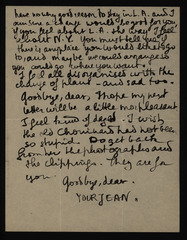 have no very good reason to stay in L.A. and I
am sure a change would be good for you
If you feel about L.A. the way I feel
about N.Y. You must tell me if
this is any place you would like to go
to, and maybe we could arrange to
go where you want.
I feel all disorganised with the
change of plans - and sad too.
Goodbye, dear. I hope my next
letter will be a little more pleasant
I feel kind of dead. I wish
the old Chouinard had not been
so stupid. Do get back
from her the photographs and
the clippings. They are for
you.
Goodbye, dear.
YOUR JEAN.